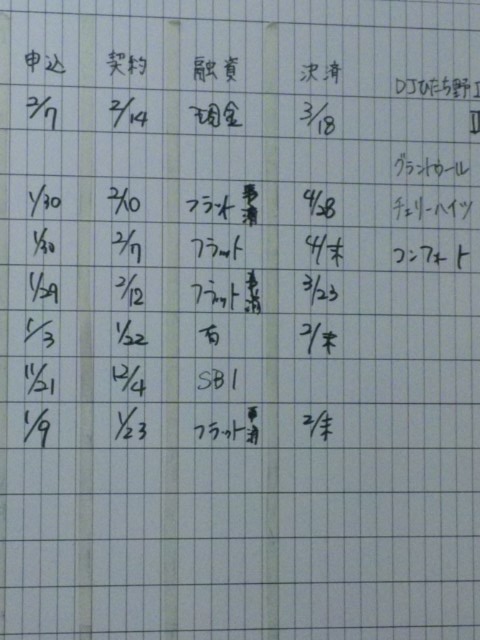 申込 契約 融資 決済
DJひたち野 I
2/7 2/14 現金 3/18
II
グラントカール
1/30 2/10 フラット 事済 4/28 チェリーハイツ
1/30 2/7 フラット 4/末 コンフォート
1/29 2/12 フラット 事済 3/23
1/3 1/22 有 2/末
11/21 12/4 SBI
1/9 1/23 フラット 事済 2/末